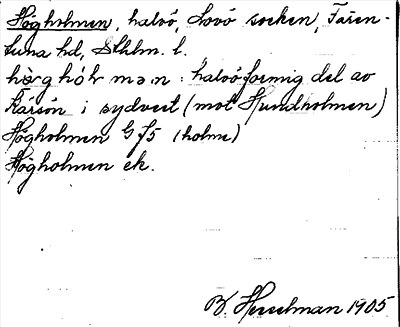 Högholmen, halvö, Lovö socken, Fären-
tuna hd, Sthlm. l.
hö̀ghòlman : halvöformig del av
Kärsön i sydvest (mot Hundholmen)
Högholmen G f5 (holme)
Högholmen ek.
B. Hesselman 1905